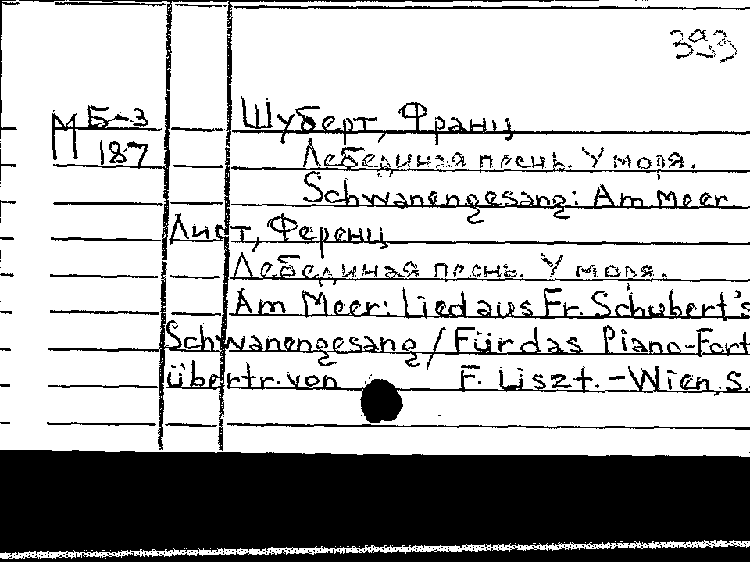 393
М Б-3
187
Шуберт, Франц
Лебединая песнь. У моря.
Schwanengesang: Am Meer
Лист, Ференц
Лебединая песнь. У моря.
Am Meer: Lied aus Fr. Schubert's
Schwanengesang / Für das Piano-Fort
übertr. von F. Liszt. - Wien, S.